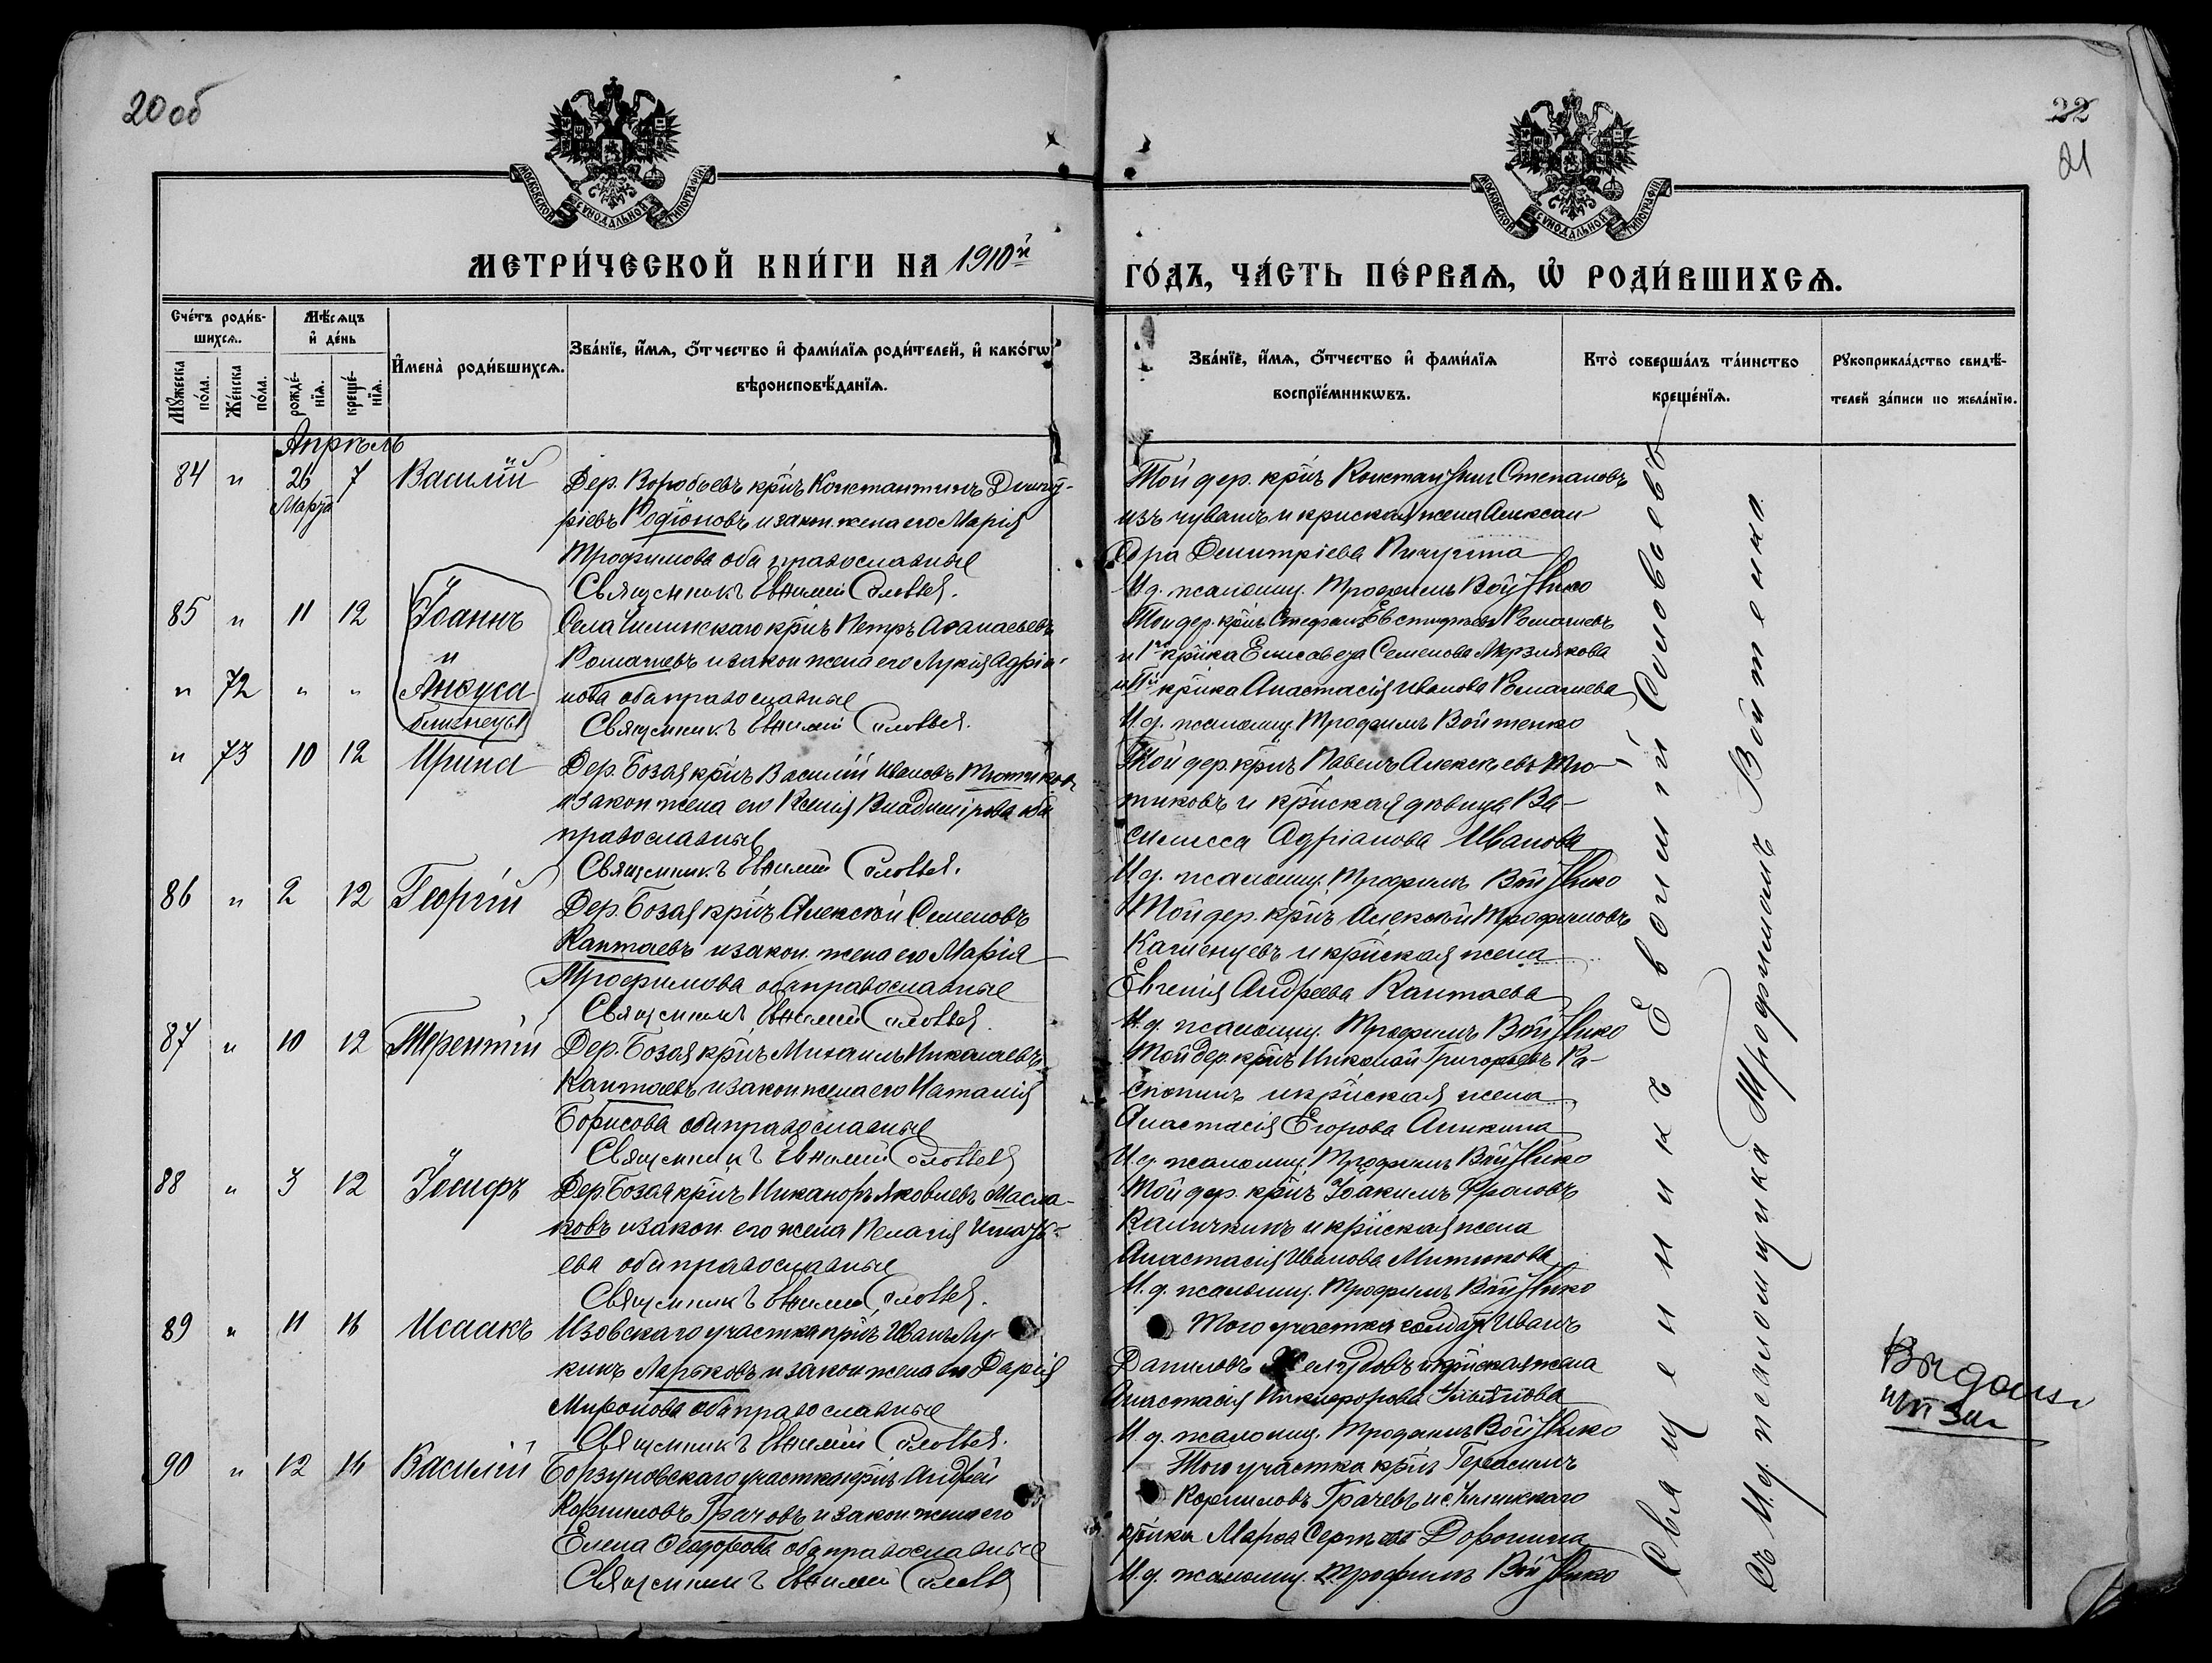 20 об
22
21
МОСКОВСКОЙ СѴНОДАЛЬНОЙ ТИПОГРАФІИ
МОСКОВСКОЙ СѴНОДАЛЬНОЙ ТИПОГРАФІИ
МЕТРИ́ЧЕСКОЙ КНИ́ГИ НА 1910й
ГО́ДЪ, ЧА́СТЬ ПЕ́РВАѦ, Ѡ҆ РОДИ́ВШИХСѦ.
Сче́тъ роди́в-
шихсѧ.
Мꙋ́жеска по́ла.
Же́нска по́ла.
Мѣ́сѧцъ
и҆ де́нь
рожде́-
нїѧ.
креще́-
нїѧ.
И҆мена̀ роди́вшихсѧ.
Зва́нїе, и҆́мѧ, ѻ҆́тчество и҆ фами́лїѧ роди́телей, и҆ како́гѡ
вѣроисповѣ́данїѧ.
Зва́нїе, и҆́мѧ, ѻ҆́тчество и҆ фами́лїѧ
воспрїе́мникѡвъ.
Кто̀ соверша́лъ та́инство
креще́нїѧ.
Рꙋкоприкла́дство свидѣ́-
телей за́писи по жела́нїю.
Апрѣль
84 " 26 Марта 7 Василій
Дер. Воробьевъ кр-нъ Константинъ Димит-
ріевъ Родіоновъ и закон. жена его Марія
Трофимова оба православные
Священникъ Евѳимій Соловьев.
Той дер. кр-нъ Константинъ Степановъ
изъ чувашъ и кр-нская жена Алексан
дра Димитріева Пичугина
И. д. псаломщ. Трофимъ Войтенко
85 " 11 12 Іоаннъ
и
" 72 " " Анѳуса
близнецы
Села Чилинскаго кр-нъ Петръ Аѳанасьевъ
Ромашевъ и закон жена его Лукія Адріа-
нова оба православные
Священникъ Евѳимій Соловьев.
Той дер. кр-нъ Стефанъ Евстафіевъ Ромашевъ
и 1я кр-нка Елисавета Семенова Мерзлякова
и IIй кр-нка Анастасія Иванова Ромашева
И. д. псаломщ. Трофимъ Войтенко
" 73 10 12 Ирина
Дер. Бозая кр-нъ Василій Ивановъ Тютиковъ
и закон жена его Ксенія Владимірова оба
православные
Священникъ Евѳимій Соловьев.
Той дер. кр-нъ Павелъ Алексѣевъ Тю-
тиковъ и кр-нская дѣвица Ва-
силисса Адріанова Иванова
И. д. псаломщ. Трофимъ Войтенко
86 " 2 12 Георгій
Дер. Бозая кр-нъ Алексѣй Семеновъ
Каптаевъ и закон. жена его Марія
Трофимова оба православные
Священникъ Евѳимій Соловьев.
Той дер. кр-нъ Алексѣй Трофимовъ
и кр-нская жена
Евгенія Андреева Каптаева
И. д. псаломщ. Трофимъ Войтенко
87 " 10 12 Терентій
Дер. Бозая кр-нъ Михаилъ Николаевъ
Каптаевъ и закон жена его Наталія
Борисова оба православные
Священникъ Евѳимій Соловьев
Той дер. кр-нъ Николай Григорьевъ Ра-
спопинъ и кр-нская жена
Анастасія Егорова Аникина
И. д. псаломщ. Трофимъ Войтенко
88 " 3 12 Іосифъ
Дер. Бозая кр-нъ Никаноръ Яковлевъ Масла-
ковъ и закон. его жена Пелагія Игнать-
ева оба православные
Священникъ Евѳимій Соловьев.
Той дер. кр-нъ Іоакимъ Фроловъ
Каличкинъ и кр-нская жена
Анастасія Иванова Митюкова
И. д. псаломщ. Трофимъ Войтенко
89 " 11 16 Исаакъ
Изовскаго участка кр-нъ Иванъ Лу-
кинъ Ларьковъ и закон жена его Дарія
Миронова оба православные
Священникъ Евѳимій Соловьев.
Того участка солдатъ Иванъ
Даниловъ и кр-нская жена
Анастасія Никифорова Ульянова
И. д. псаломщ. Трофимъ Войтенко
90 " 12 16 Василій
Борзуновскаго участка кр-нъ Андрей
Корниловъ Грачовъ и закон жена его
Елена Ѳеодорова оба православные
Священникъ Евѳимій Соловьев
Того участка кр-нъ Герасимъ
Корниловъ Грачевъ и с. Чилинскаго
кр-нка Марѳа Сергѣева Доронина
И. д. псаломщ. Трофимъ Войтенко
Священникъ Евѳимій Соловьевъ
съ И. д. псаломщика Трофимомъ Войтенко
Выдана